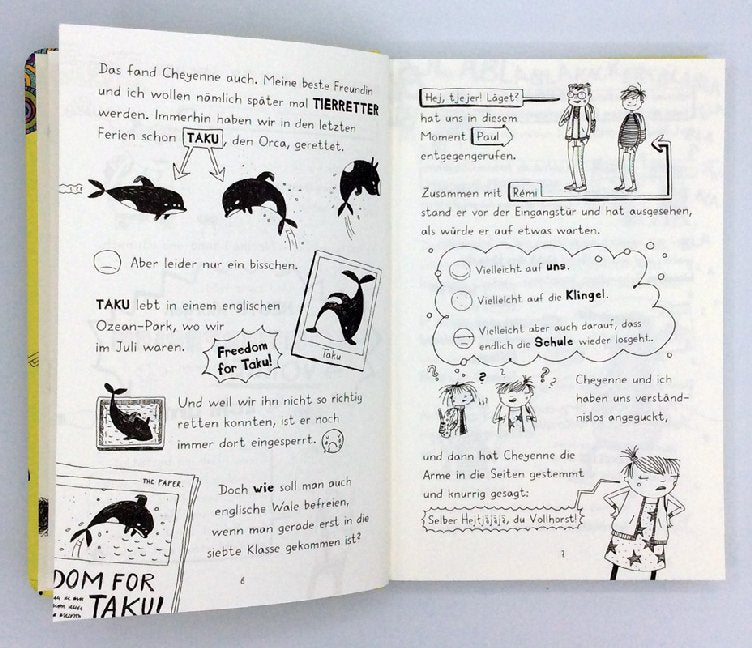 Das fand Cheyenne auch. Meine beste Freundin
und ich wollen nämlich später mal TIERRETTER
werden. Immerhin haben wir in den letzten
Ferien schon TAKU, den Orca, gerettet.
Aber leider nur ein bisschen.
TAKU lebt in einem englischen
Ozean-Park, wo wir
im Juli waren.
Freedom
for Taku!
Taku
Und weil wir ihn nicht so richtig
retten konnten, ist er noch
immer dort eingesperrt.
THE PAPER
DOM FOR
TAKU!
Doch wie soll man auch
englische Wale befreien,
wenn man gerade erst in die
siebte Klasse gekommen ist?
6
Hej, tjejer! Läget?
hat uns in diesem
Moment Paul
entgegengerufen.
Zusammen mit Rémi
stand er vor der Eingangstür und hat ausgesehen,
als würde er auf etwas warten.
Vielleicht auf uns.
Vielleicht auf die Klingel.
Vielleicht aber auch darauf, dass
endlich die Schule wieder losgeht.
? ? ? ?
Cheyenne und ich
haben uns verständ-
nislos angeguckt,
und dann hat Cheyenne die
Arme in die Seiten gestemmt
und knurrig gesagt:
Selber Hejtjäjäjä, du Vollhorst!
7